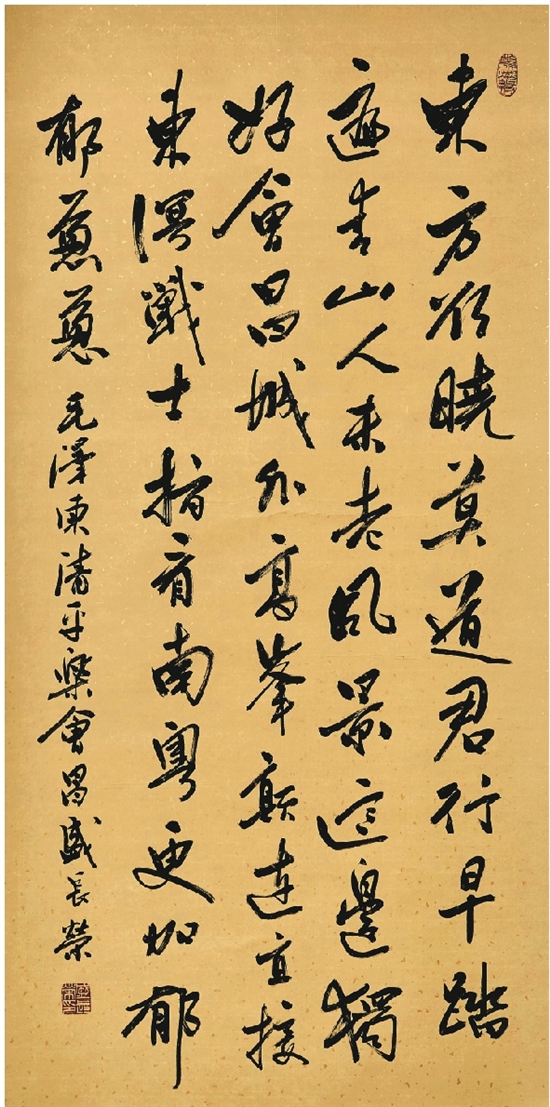 東方欲曉莫道君行早踏
遍青山人未老風景這邊獨
好會昌城外高峯顛連直接
東溟戰士指看南粵更加郁
郁蔥蔥 毛澤東清平樂會昌盛長榮